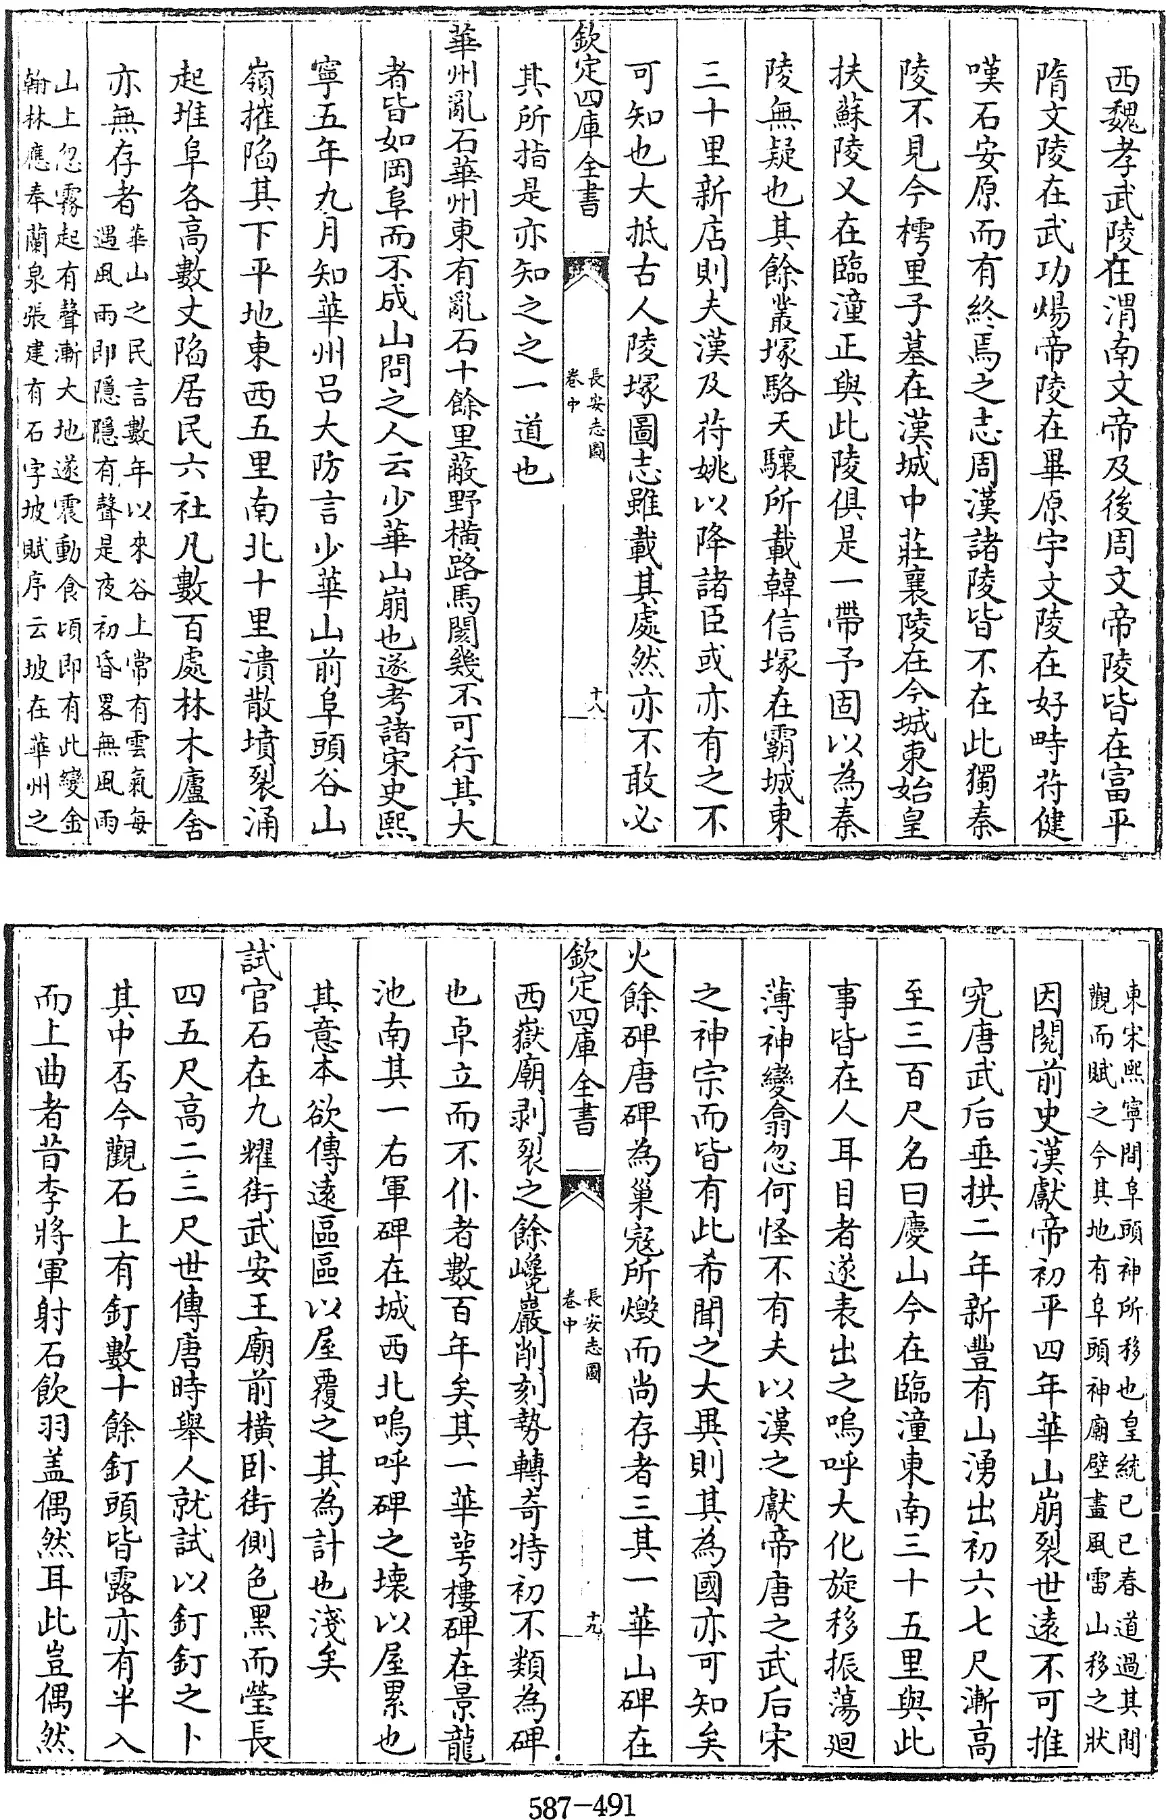 西魏孝武陵在渭南文帝及後周文帝陵皆在富平
隋文陵在武功煬帝陵在畢原宇文陵在好畤苻健
嘆石安原而有終焉之志周漢諸陵皆不在此獨秦
陵不見今樗里子墓在漢城中莊襄陵在今城東始皇
扶蘇陵又在臨潼正與此陵俱是一帶予固以為秦
陵無疑也其餘叢塚駱天驤所載韓信塚在霸城東
三十里新店則夫漢及苻姚以降諸臣或亦有之不
可知也大抵古人陵塚圖志雖載其處然亦不敢必
欽定四庫全書
長安志圖
卷中
十八
其所指是亦知之之一道也
華州亂石華州東有亂石十餘里蔽野橫路馬閡幾不可行其大
者皆如岡阜而不成山問之人云少華山崩也遂考諸宋史熙
寧五年九月知華州呂大防言少華山前阜頭谷山
嶺摧陷其下平地東西五里南北十里潰散墳裂涌
起堆阜各高數丈陷居民六社凡數百處林木廬舍
亦無存者
華山之民言數年以來谷上常有雲氣每
遇風雨即隱隱有聲是夜初昏畧無風雨
山上忽霧起有聲漸大地遂震動食頃即有此變金
翰林應奉蘭泉張建有石字坡賦序云坡在華州之
東宋熙寧間阜頭神所移也皇統己巳春道過其間
觀而賦之今其地有阜頭神廟壁畫風雷山移之狀
因閱前史漢獻帝初平四年華山崩裂世遠不可推
究唐武后垂拱二年新豐有山湧出初六七尺漸高
至三百尺名曰慶山今在臨潼東南三十五里與此
事皆在人耳目者遂表出之嗚呼大化旋移振蕩迴
薄神變翕忽何怪不有夫以漢之獻帝唐之武后宋
之神宗而皆有此希聞之大異則其為國亦可知矣
火餘碑唐碑為巢寇所燬而尚存者三其一華山碑在
欽定四庫全書
長安志圖
卷中
十九
西嶽廟剥裂之餘巉巖削刻勢轉奇特初不類為碑
也卓立而不仆者數百年矣其一華萼樓碑在景龍
池南其一右軍碑在城西北嗚呼碑之壞以屋累也
其意本欲傳遠區區以屋覆之其為計也淺矣
試官石在九耀街武安王廟前橫卧街側色黑而瑩長
四五尺高二三尺世傳唐時舉人就試以釘釘之卜
其中否今觀石上有釘數十餘釘頭皆露亦有半入
而上曲者昔李將軍射石飲羽盖偶然耳此豈偶然
587-491